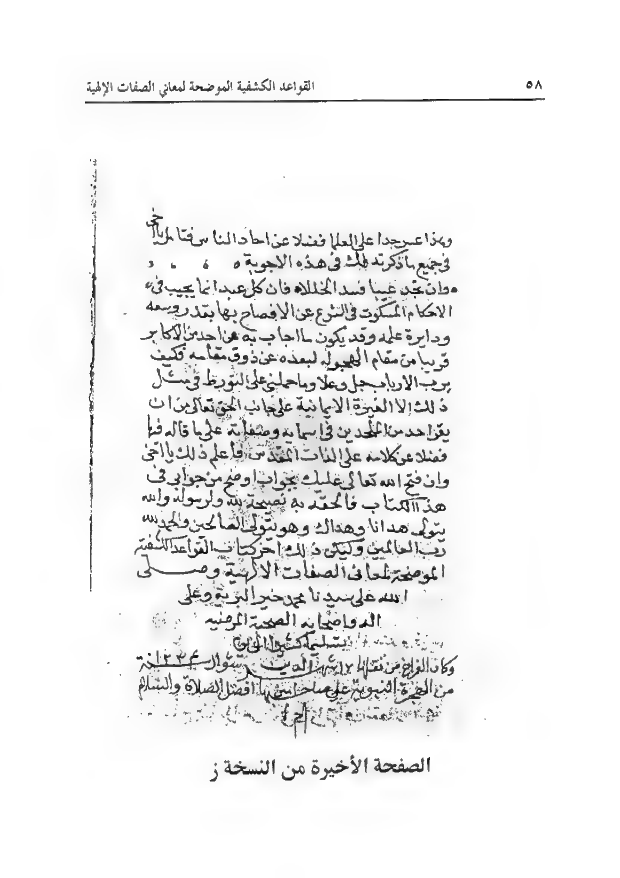 ٥٨ القواعد الكشفية الموضحة لمعاني الصفات الإلهية
وهذا عسر جدا على العلما فضلا عن احاد الناس فتامل يا اخى
فى جميع ما ذكرته لك فى هذه الاجوبة
وان تجد عيبا فسد الخللا فان كل عبد انما يجيب فى
الاحكام المسكوت فى الشرع عن الافصاح بها بقدر وسعه
ودايرة علمه وقد يكون ما اجاب به عن احد من الاكابر
قريبا من مقام لبعده عن ذوق مقامه فكيف
برب الارباب جل وعلا وما حملنى على التورط فى مثل
ذلك الا الغيرة الايمانية على جانب الحق تعالى من ان
احد من الملحدين فى اسمايه وصفاته على ما قاله فيها
فضلا عن كلامه على الذات المقدس فاعلم ذلك يا اخى
وان فتح الله تعالى عليك بجواب اوضح من جوابى فى
هذا الكتاب فالحقه به نصيحة لله ولرسوله والله
يتولى هدانا وهداك وهو يتولى الصالحين والحمد لله
رب العالمين وليكن ذلك اخر كتاب القواعد الكشفية
الموضحة لمعانى الصفات الالهية وصلى
الله على سيدنا محمد خير البرية وعلى
اله واصحابه الصحبة المرضية
تسليما كثيرا
وكان الفراغ من شوال
من الهجرة النبوية على صاحبها افضل الصلاة والسلام
الصفحة الأخيرة من النسخة ز